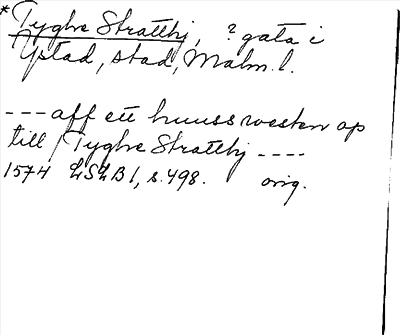 *Tyghe Strætthj, ? gata i
Ystad, stad, Malm. l.
---aff ett huuss westen op
till Tyghe Strætthj ----
1574 LSLB 1, s. 498. orig.